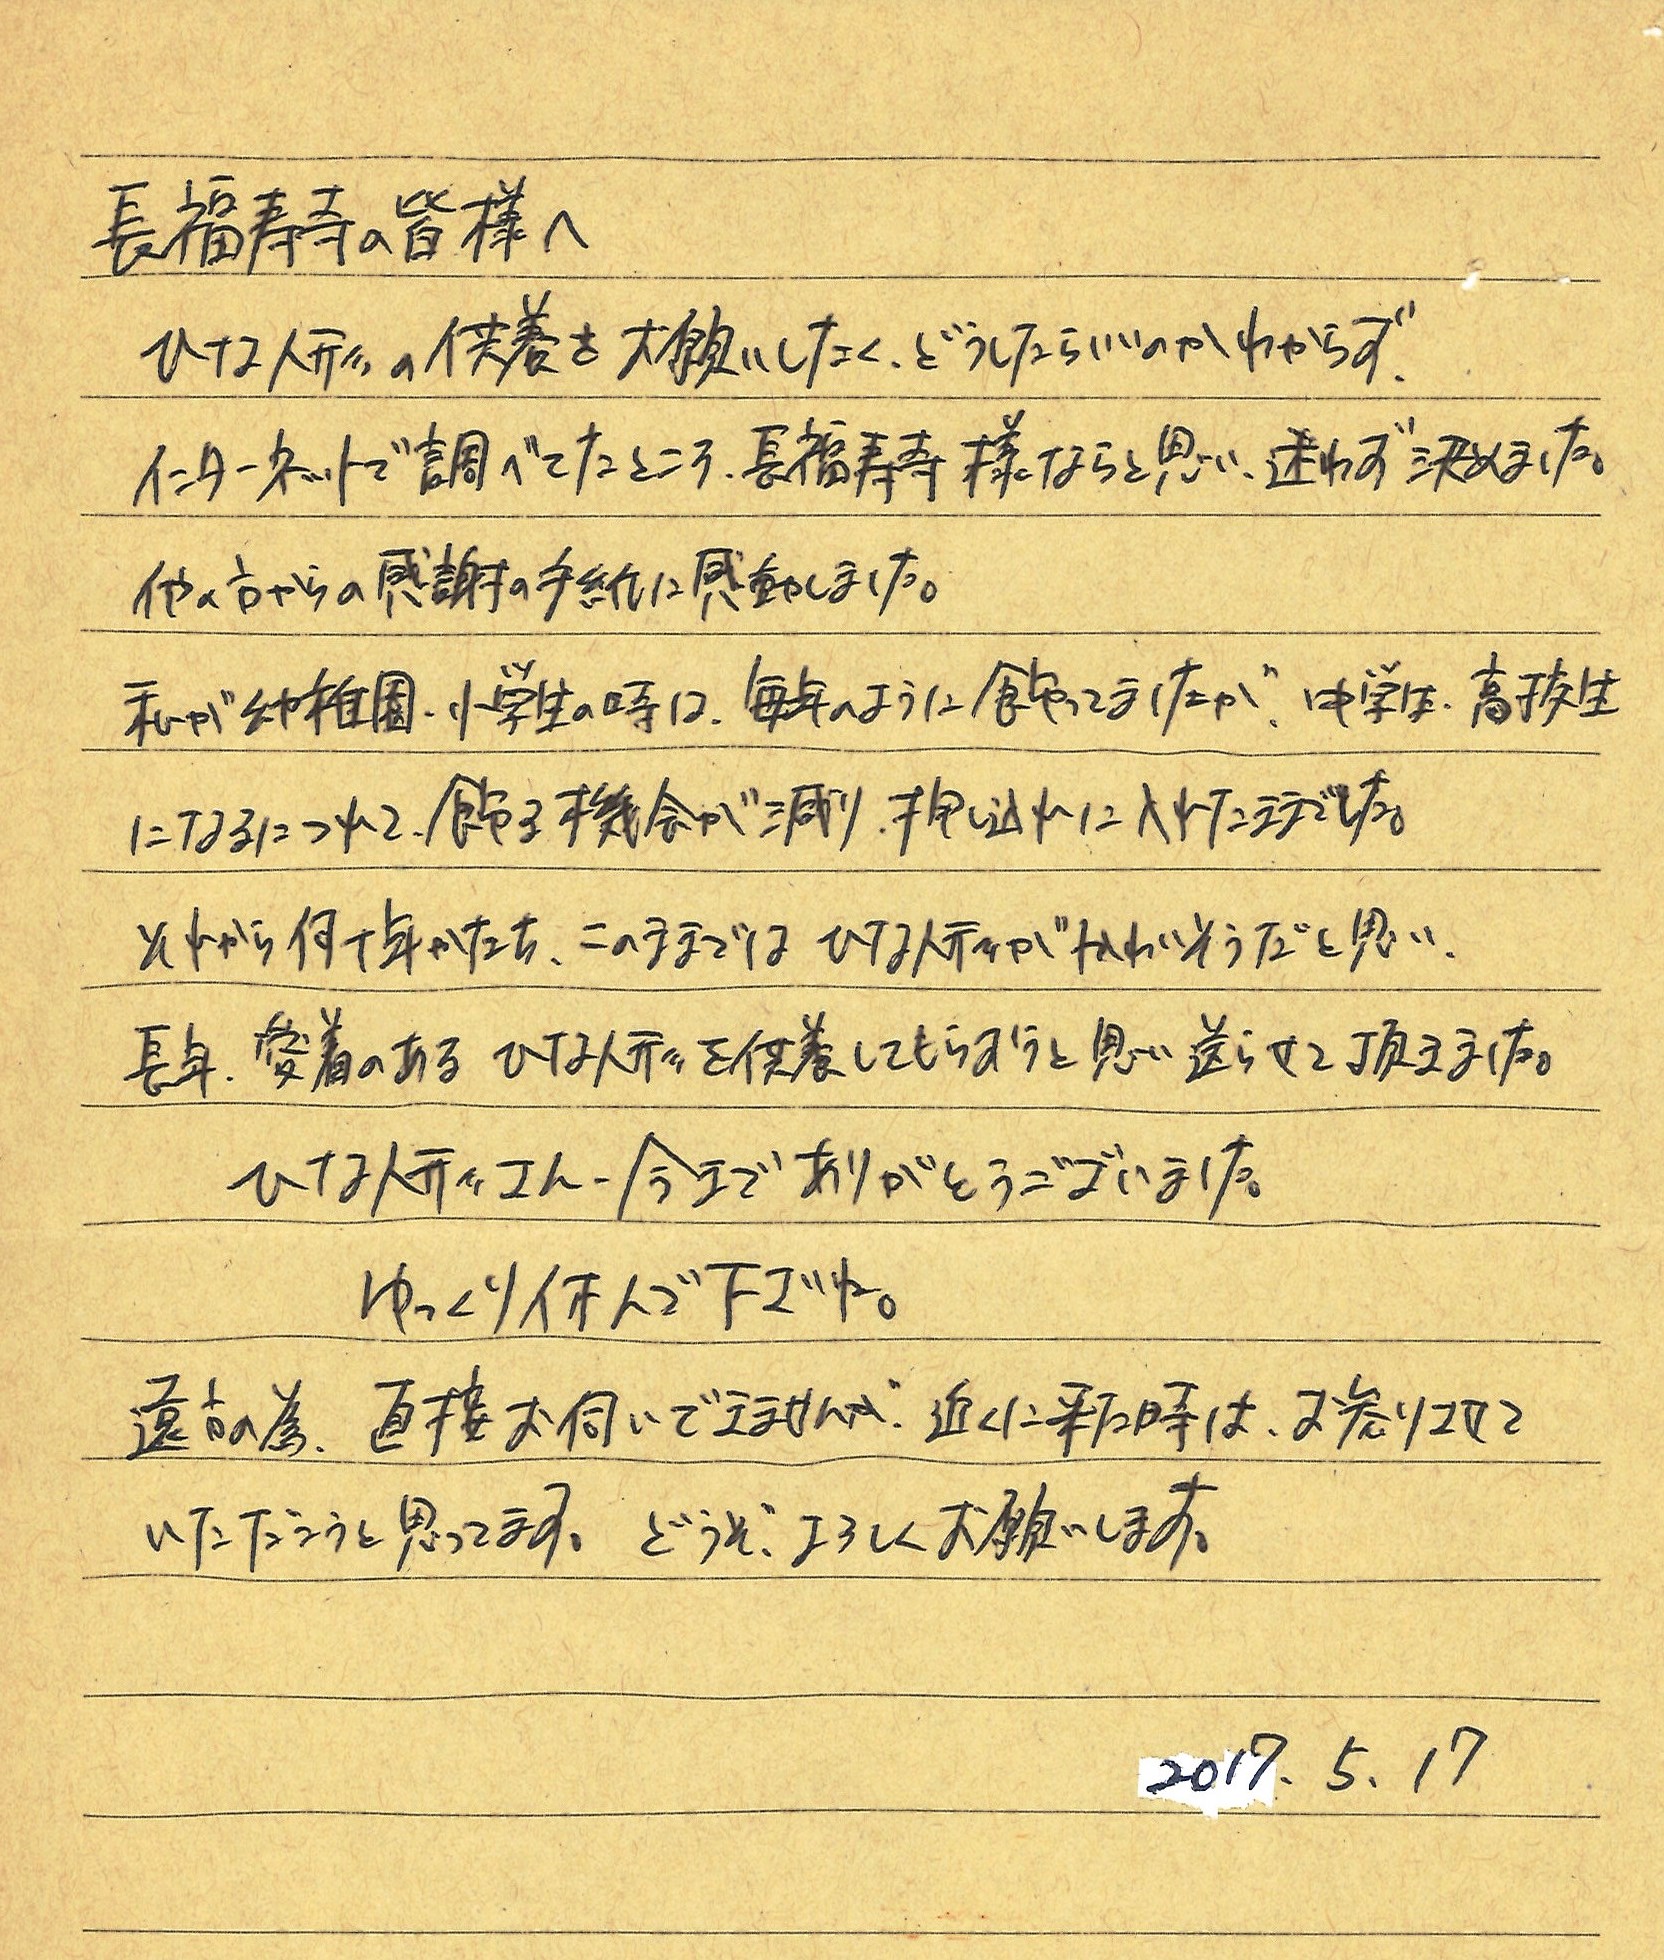 長福寿寺の皆様へ
ひな人形の供養をお願いしたく、どうしたらいいのかわからず、
インターネットで調べてたところ、長福寿寺様ならと思い、迷わず決めました。
他の方からの感謝の手紙に感動しました。
私が幼稚園、小学生の時は、毎年のように飾ってましたが、中学生、高校生
になるにつれて、飾る機会が減り、押し込れに入れたままでした。
それから何十年かたち、このままでは ひな人形がかわいそうだと思い、
長年、愛着のある ひな人形を供養してもらおうと思い 送らせて頂きました。
ひな人形さん、今まで ありがとうございました。
ゆっくり休んで下さいね。
遠方の為、直接お伺いできませんが、近くに来た時は、お参りさせて
いただこうと思ってます。 どうぞ、よろしくお願いします。
2017. 5. 17